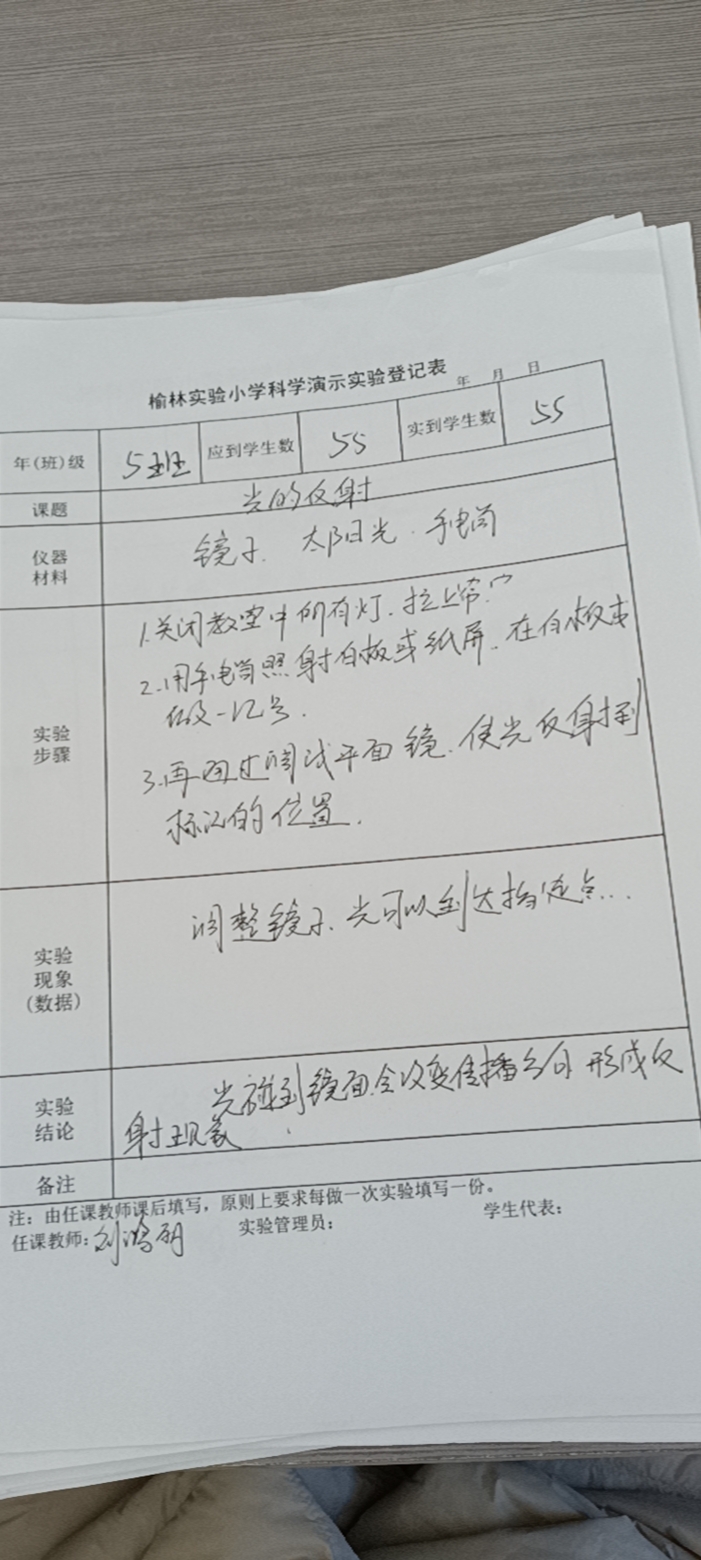 榆林实验小学科学演示实验登记表
年 月 日
年(班)级 5班 应到学生数 55 实到学生数 55
课题 光的反射
仪器材料 镜子. 太阳光. 手电筒
实验步骤
1.关闭教室中所有灯.拉上帘.
2.用手电筒照射白板或纸屏.在白板或
做一记号.
3.再通过调试平面镜.使光反射到
标记的位置.
实验现象(数据)
调整镜子.光可以到达指定点...
实验结论
光碰到镜面.会改变传播方向 形成反
射现象
备注
注：由任课教师课后填写，原则上要求每做一次实验填写一份。
任课教师: 刘 实验管理员: 学生代表: